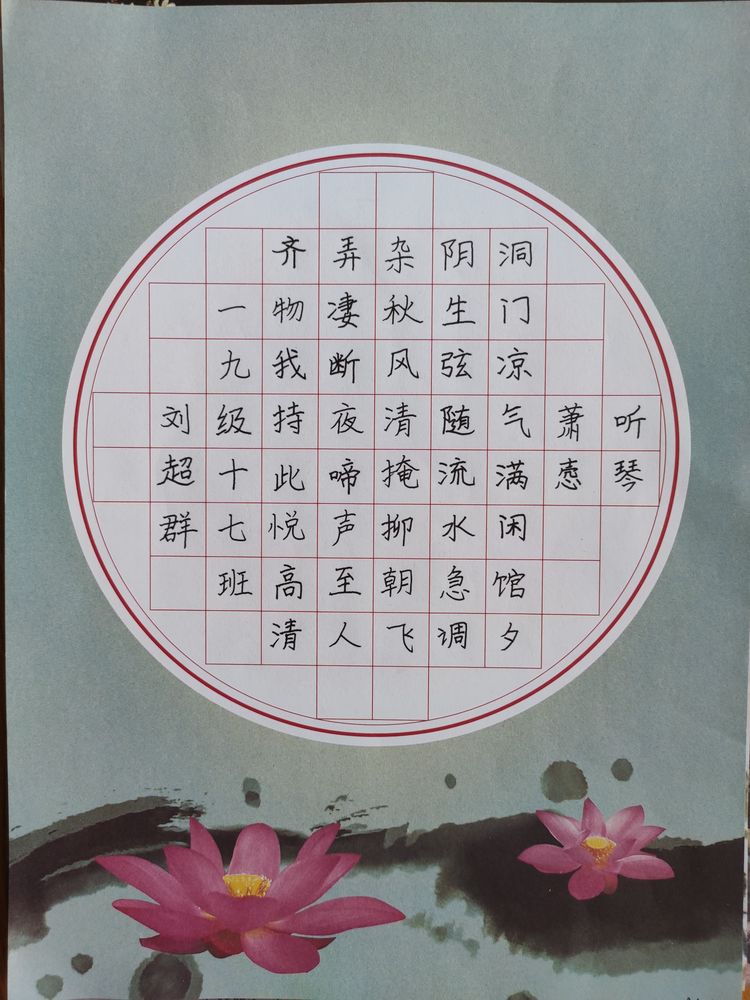 听琴
萧悫
洞门凉气满闲馆夕
阴生弦随流水急调
杂秋风清掩抑朝飞
弄凄断夜啼声至人
齐物我持此悦高清
一九级十七班
刘超群